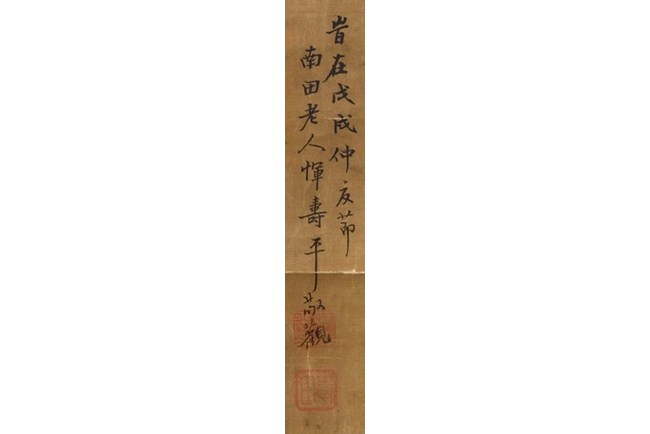 旹在戊戌仲夏节
南田老人惲壽平敬觀